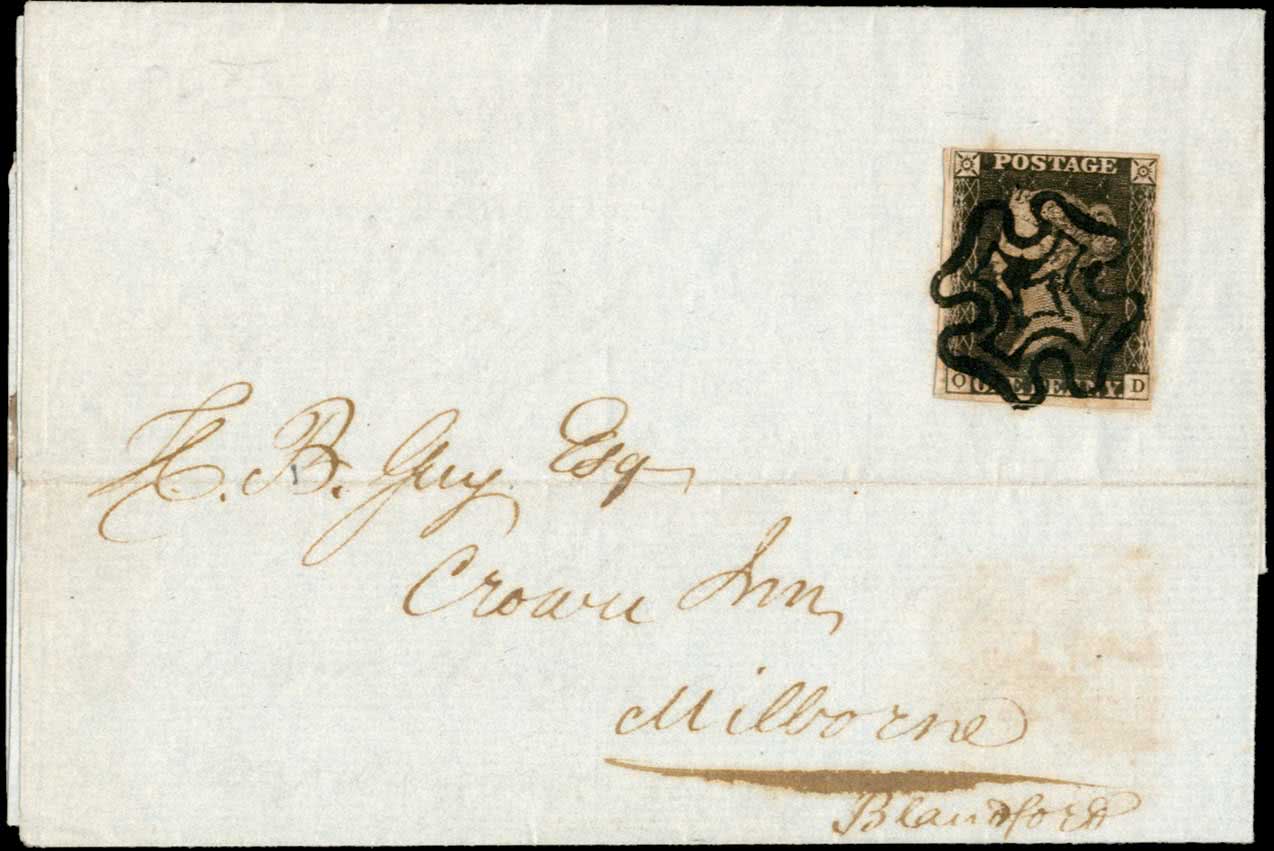 POSTAGE
O ONE PENNY D
H. B. Guy Esq
Crown Inn
Milborne
Blandford